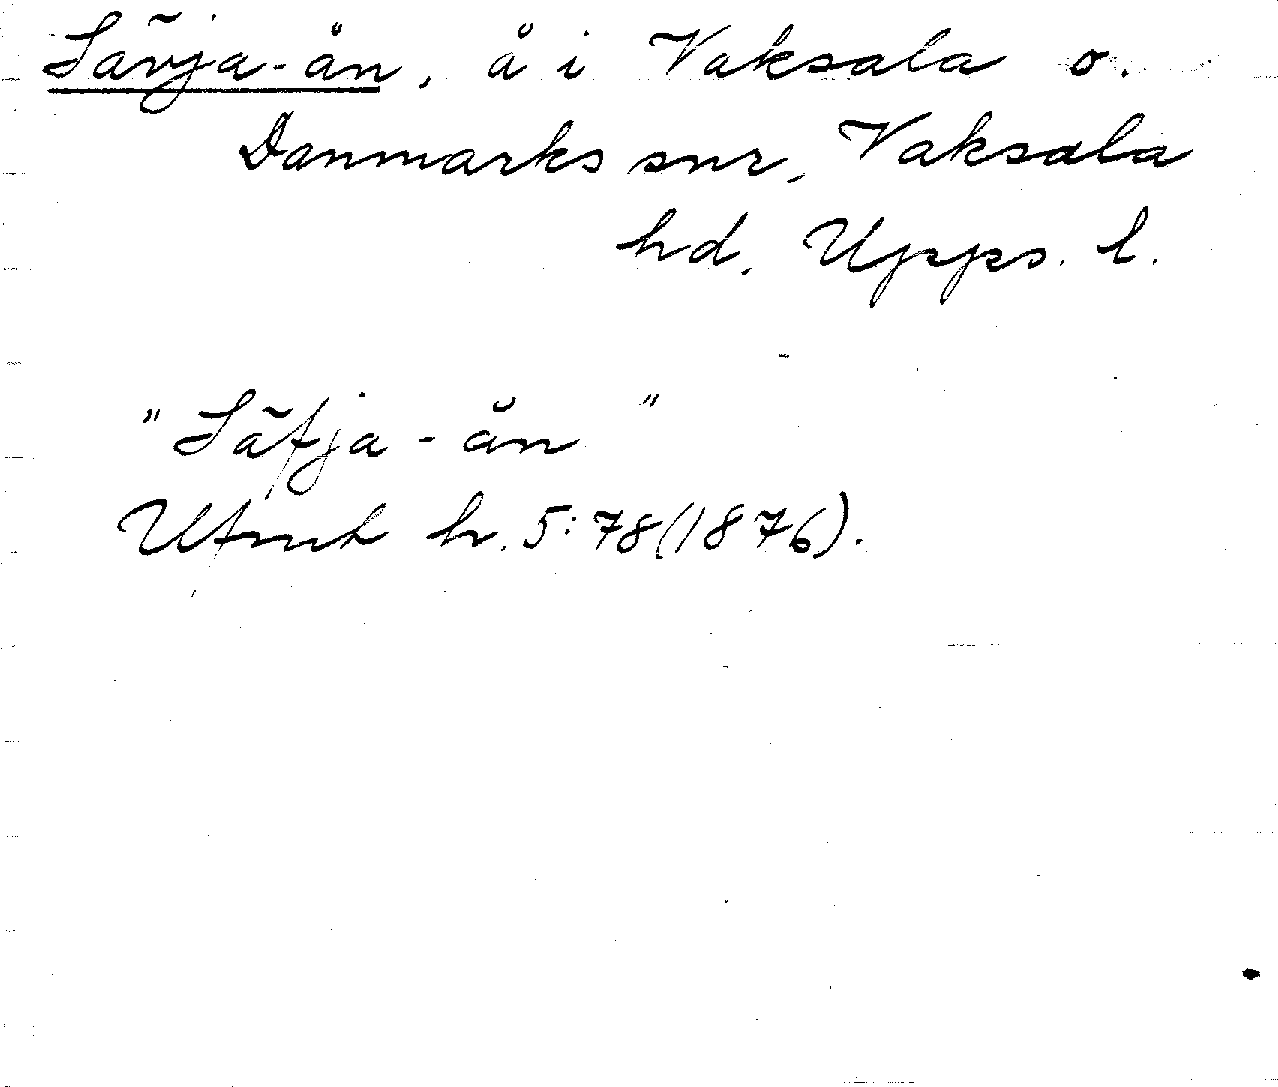 Sävja-ån, å i Vaksala o.
Danmarks snr, Vaksala
hd, Upps. l.
"Säfja-ån"
Utmt h. 5:78 (1876).